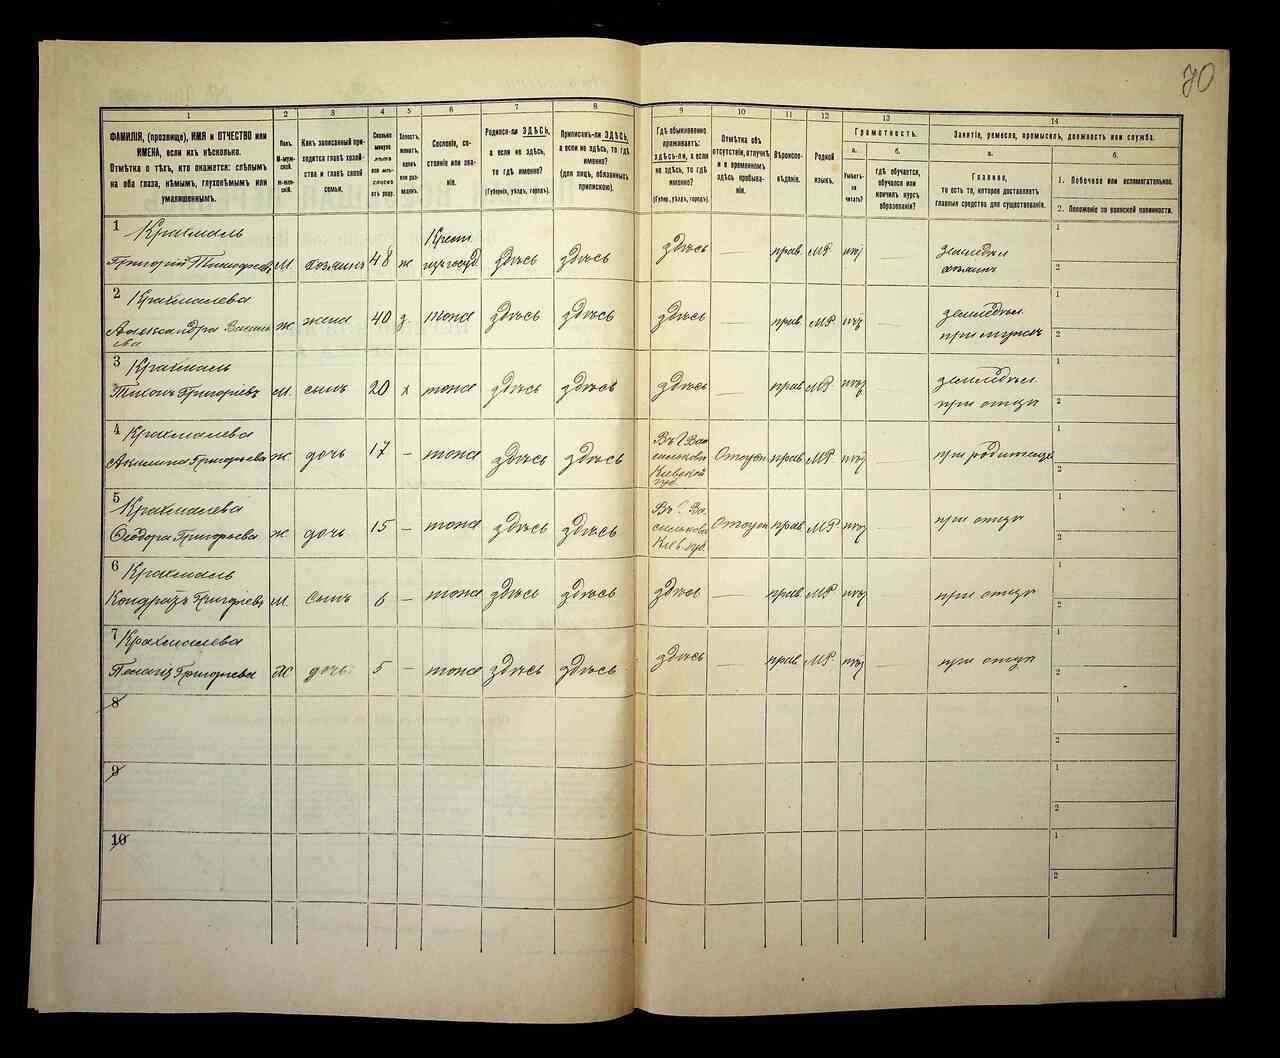 70
1 2 3 4 5 6 7 8 9 10 11 12 13 14
ФАМИЛІЯ, (прозвище), ИМЯ и ОТЧЕСТВО или
ИМЕНА, если ихъ нѣсколько.
Отмѣтка о тѣхъ, кто окажется: слѣпымъ
на оба глаза, нѣмымъ, глухонѣмымъ или
умалишеннымъ.
Полъ.
М-мужской.
Ж-женскій.
Какъ записанный приходится главѣ хозяйства и главѣ своей семьи.
Сколько минуло лѣтъ или мѣсяцевъ отъ роду.
Холостъ, женатъ, вдовъ или разведенъ.
Сословіе, состояніе или званіе.
Родился-ли ЗДѢСЬ,
а если не здѣсь,
то гдѣ именно?
(Губернія, уѣздъ, городъ).
Приписанъ-ли ЗДѢСЬ,
а если не здѣсь, то гдѣ
именно?
(для лицъ, обязанныхъ
припискою).
Гдѣ обыкновенно
проживаетъ:
здѣсь-ли, а если
не здѣсь, то гдѣ
именно?
(Губер., уѣздъ, городъ).
Отмѣтка объ
отсутствіи, отлучкѣ
и о временномъ
здѣсь пребываніи.
Вѣроисповѣданіе.
Родной
языкъ.
Грамотность.
а.
Умѣетъ-ли
читать?
б.
гдѣ обучается,
обучался или
кончилъ курсъ
образованія?
Занятіе, ремесло, промыселъ, должность или служба.
а.
Главное,
то есть то, которое доставляетъ
главныя средства для существованія.
б.
1. Побочное или вспомогательное.
2. Положеніе по воинской повинности.
1 Крахмаль
Григорій Тимофеев М. хозяинъ 48 ж Крест. здѣсь здѣсь здѣсь прав. МР. земледѣл. хозяинъ 1 2
2 Крахмалева
Александра ж жена 40 з. тоже здѣсь здѣсь здѣсь — прав МР. — земледѣл. при мужѣ 1 2
3 Крахмаль
Тихонъ Григорiевъ М. сынъ 20 х тоже здѣсь здѣсь здѣсь — прав МР — земледѣл. при отцѣ 1 2
4 Крахмалева
Акилина Григорьева ж дочь 17 — тоже здѣсь здѣсь Въ Г. Васильковѣ Кіевской губ. прав МР. — при 1 2
5 Крахмалева
Ѳеодора Григорьева ж дочь 15 — тоже здѣсь здѣсь Въ Г. Васильковѣ Кіев. губ. прав МР — при отцѣ 1 2
6 Крахмаль
Кондратъ Григоріевъ М. Сынъ 6 — тоже здѣсь здѣсь здѣсь — прав. МР — при отцѣ 1 2
7 Крахмалева
Григорьева Ж дочь 5 — тоже здѣсь здѣсь здѣсь — прав МР. — при отцѣ 1 2
8 1 2
9 1 2
10 1 2